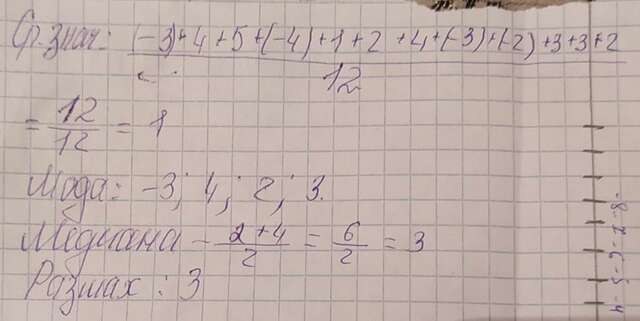 Ср. знач: (-3)+4+5+(-4)+1+2+4+(-3)+(-2)+3+3+2
12
= 12/12 = 1
Мода: -3; 4; 2; 3.
Медиана - 2+4/2 = 6/2 = 3
Размах: 3